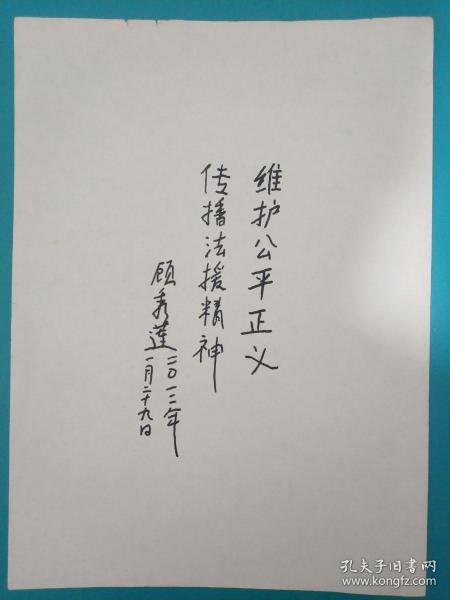 维护公平正义
传播法援精神
顾秀莲二〇一二年
一月二十九日
孔夫子旧书网
www.kongfz.com